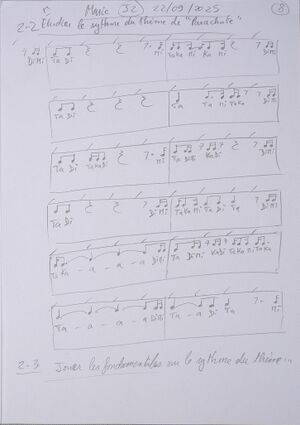 Music (J2) 22/09/2025 8
2-2 Etudier le rythme du thème de "Parachute"
DiMi Ta Di Mi Ta Ka Mi Ka Mi DiMi
Ta Di Ta Ta Mi TaKa Mi
Ta Di TaKaDi Mi Ta DiMi KaDi DiMi
Ta Di Di Mi TaKa Mi Ta Di Ta DiMi
TaKa - a - a - a DiMi Ta DiMi KaDi KaMi TaKa
Ta - a - a - a DiMi Ta - a Di Di Ta Mi
2-3 Jouer les fondamentales sur le rythme du thème...